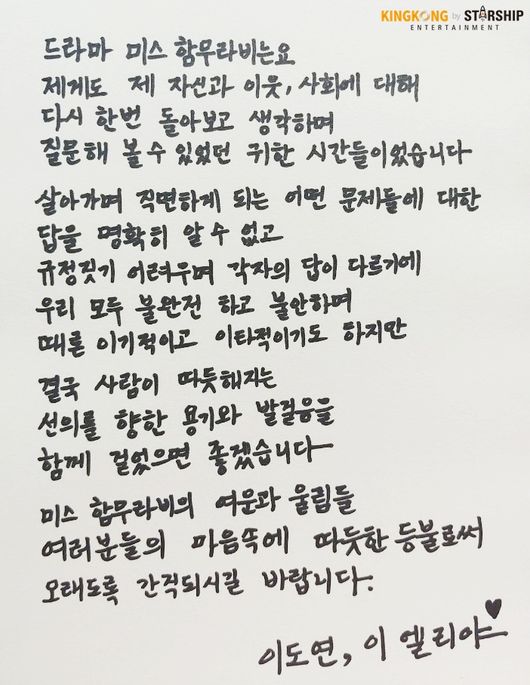 KINGKONG by STARSHIP
ENTERTAINMENT
드라마 미스 함무라비는요
제게도 제 자신과 이웃, 사회에 대해
다시 한번 돌아보고 생각하며
질문해 볼 수 있었던 귀한 시간들이었습니다
살아가며 직면하게 되는 어떤 문제들에 대한
답을 명확히 알 수 없고
규정짓기 어려우며 각자의 답이 다르기에
우리 모두 불완전 하고 불안하며
때론 이기적이고 이타적이기도 하지만
결국 사람이 따듯해지는
선의를 향한 용기와 발걸음을
함께 걸었으면 좋겠습니다
미스 함무라비의 여운과 울림들
여러분들의 마음속에 따듯한 등불로써
오래도록 간직되시길 바랍니다.
이도연, 이 엘리야